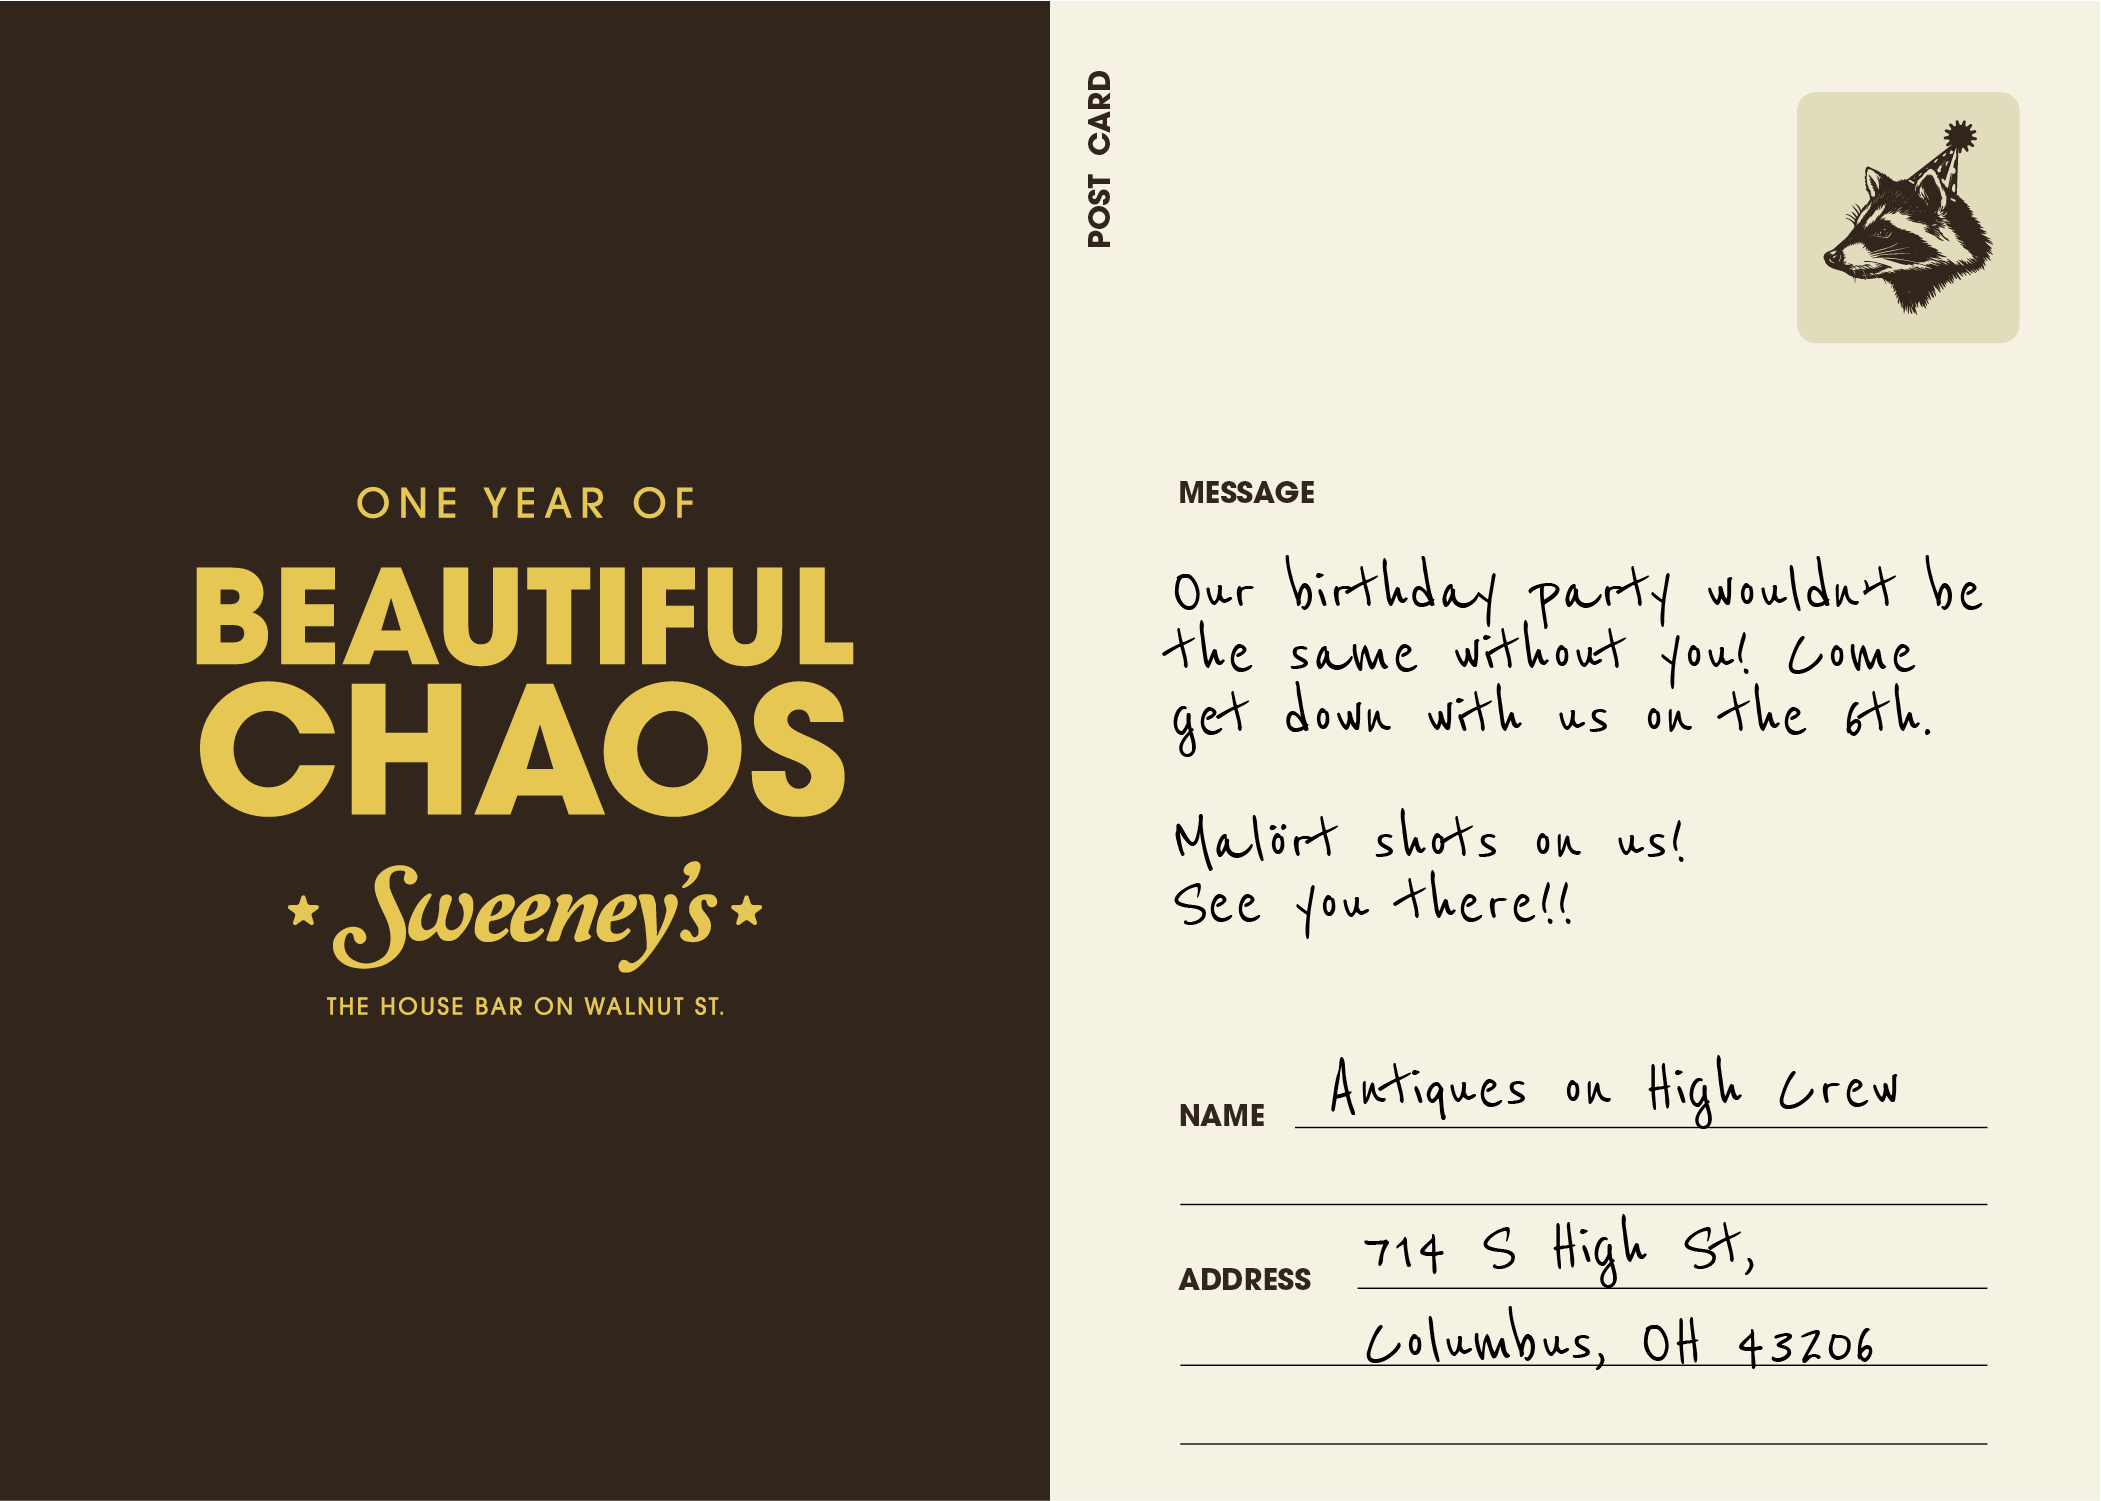 ONE YEAR OF
BEAUTIFUL
CHAOS
Sweeney's
THE HOUSE BAR ON WALNUT ST.
POST CARD
MESSAGE
Our birthday party wouldnt be
the same without you! Come
get down with us on the 6th.
Malört shots on us!
See you there!!
NAME Antiques on High Crew
ADDRESS 714 S High St,
Columbus, OH 43206